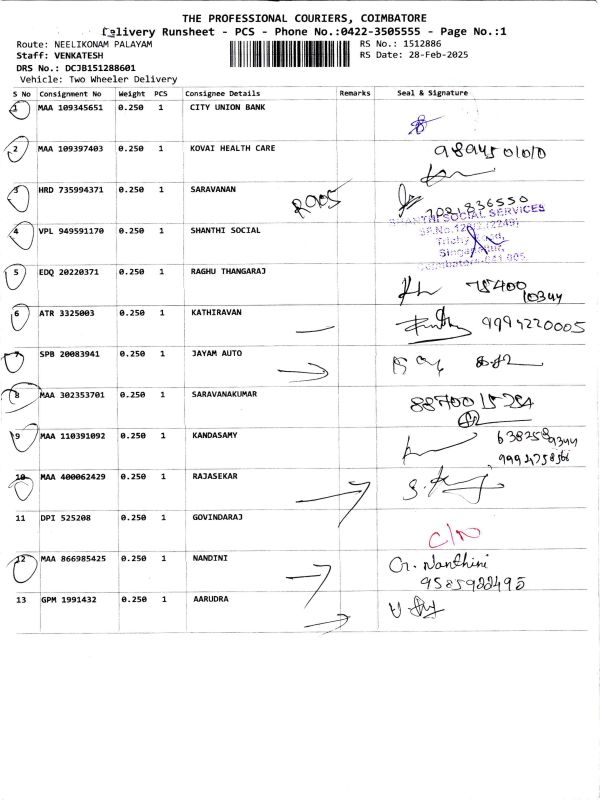 THE PROFESSIONAL COURIERS, COIMBATORE
Delivery Runsheet - PCS - Phone No.:0422-3505555 - Page No.:1
Route: NEELIKONAM PALAYAM RS No.: 1512886
Staff: VENKATESH RS Date: 28-Feb-2025
DRS No.: DCJB151288601
Vehicle: Two Wheeler Delivery
S No Consignment No Weight PCS Consignee Details Remarks Seal & Signature
1 MAA 109345651 0.250 1 CITY UNION BANK
2 MAA 109397403 0.250 1 KOVAI HEALTH CARE 9894501010
3 HRD 735994371 0.250 1 SARAVANAN 7081836550
SHANTHI SOCIAL SERVICES
4 VPL 949591170 0.250 1 SHANTHI SOCIAL
Trichy Road,
Singanallur,
Coimbatore-641 005
5 EDQ 20220371 0.250 1 RAGHU THANGARAJ 75400
10344
6 ATR 3325003 0.250 1 KATHIRAVAN 9994220005
7 SPB 20083941 0.250 1 JAYAM AUTO
8 MAA 302353701 0.250 1 SARAVANAKUMAR 8870015254
9 MAA 110391092 0.250 1 KANDASAMY
10 MAA 400062429 0.250 1 RAJASEKAR
11 DPI 525208 0.250 1 GOVINDARAJ C/N
12 MAA 866985425 0.250 1 NANDINI G. Nanthini
9585922495
13 GPM 1991432 0.250 1 AARUDRA